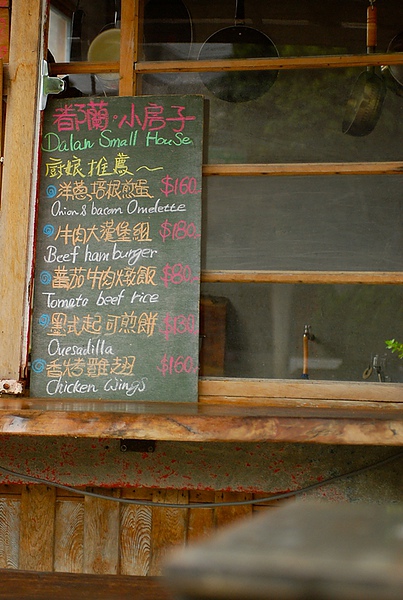 都蘭·小房子
Dalan Small House
廚娘推薦～
洋蔥培根煎蛋 $160.
Onion & bacon Omelette
牛肉大漢堡組 $180.
Beef hamburger
蕃茄牛肉燉飯 $180.
Tomato beef rice
墨式起司煎餅 $130.
Quesadilla
香烤雞翅 $160.
Chicken Wings